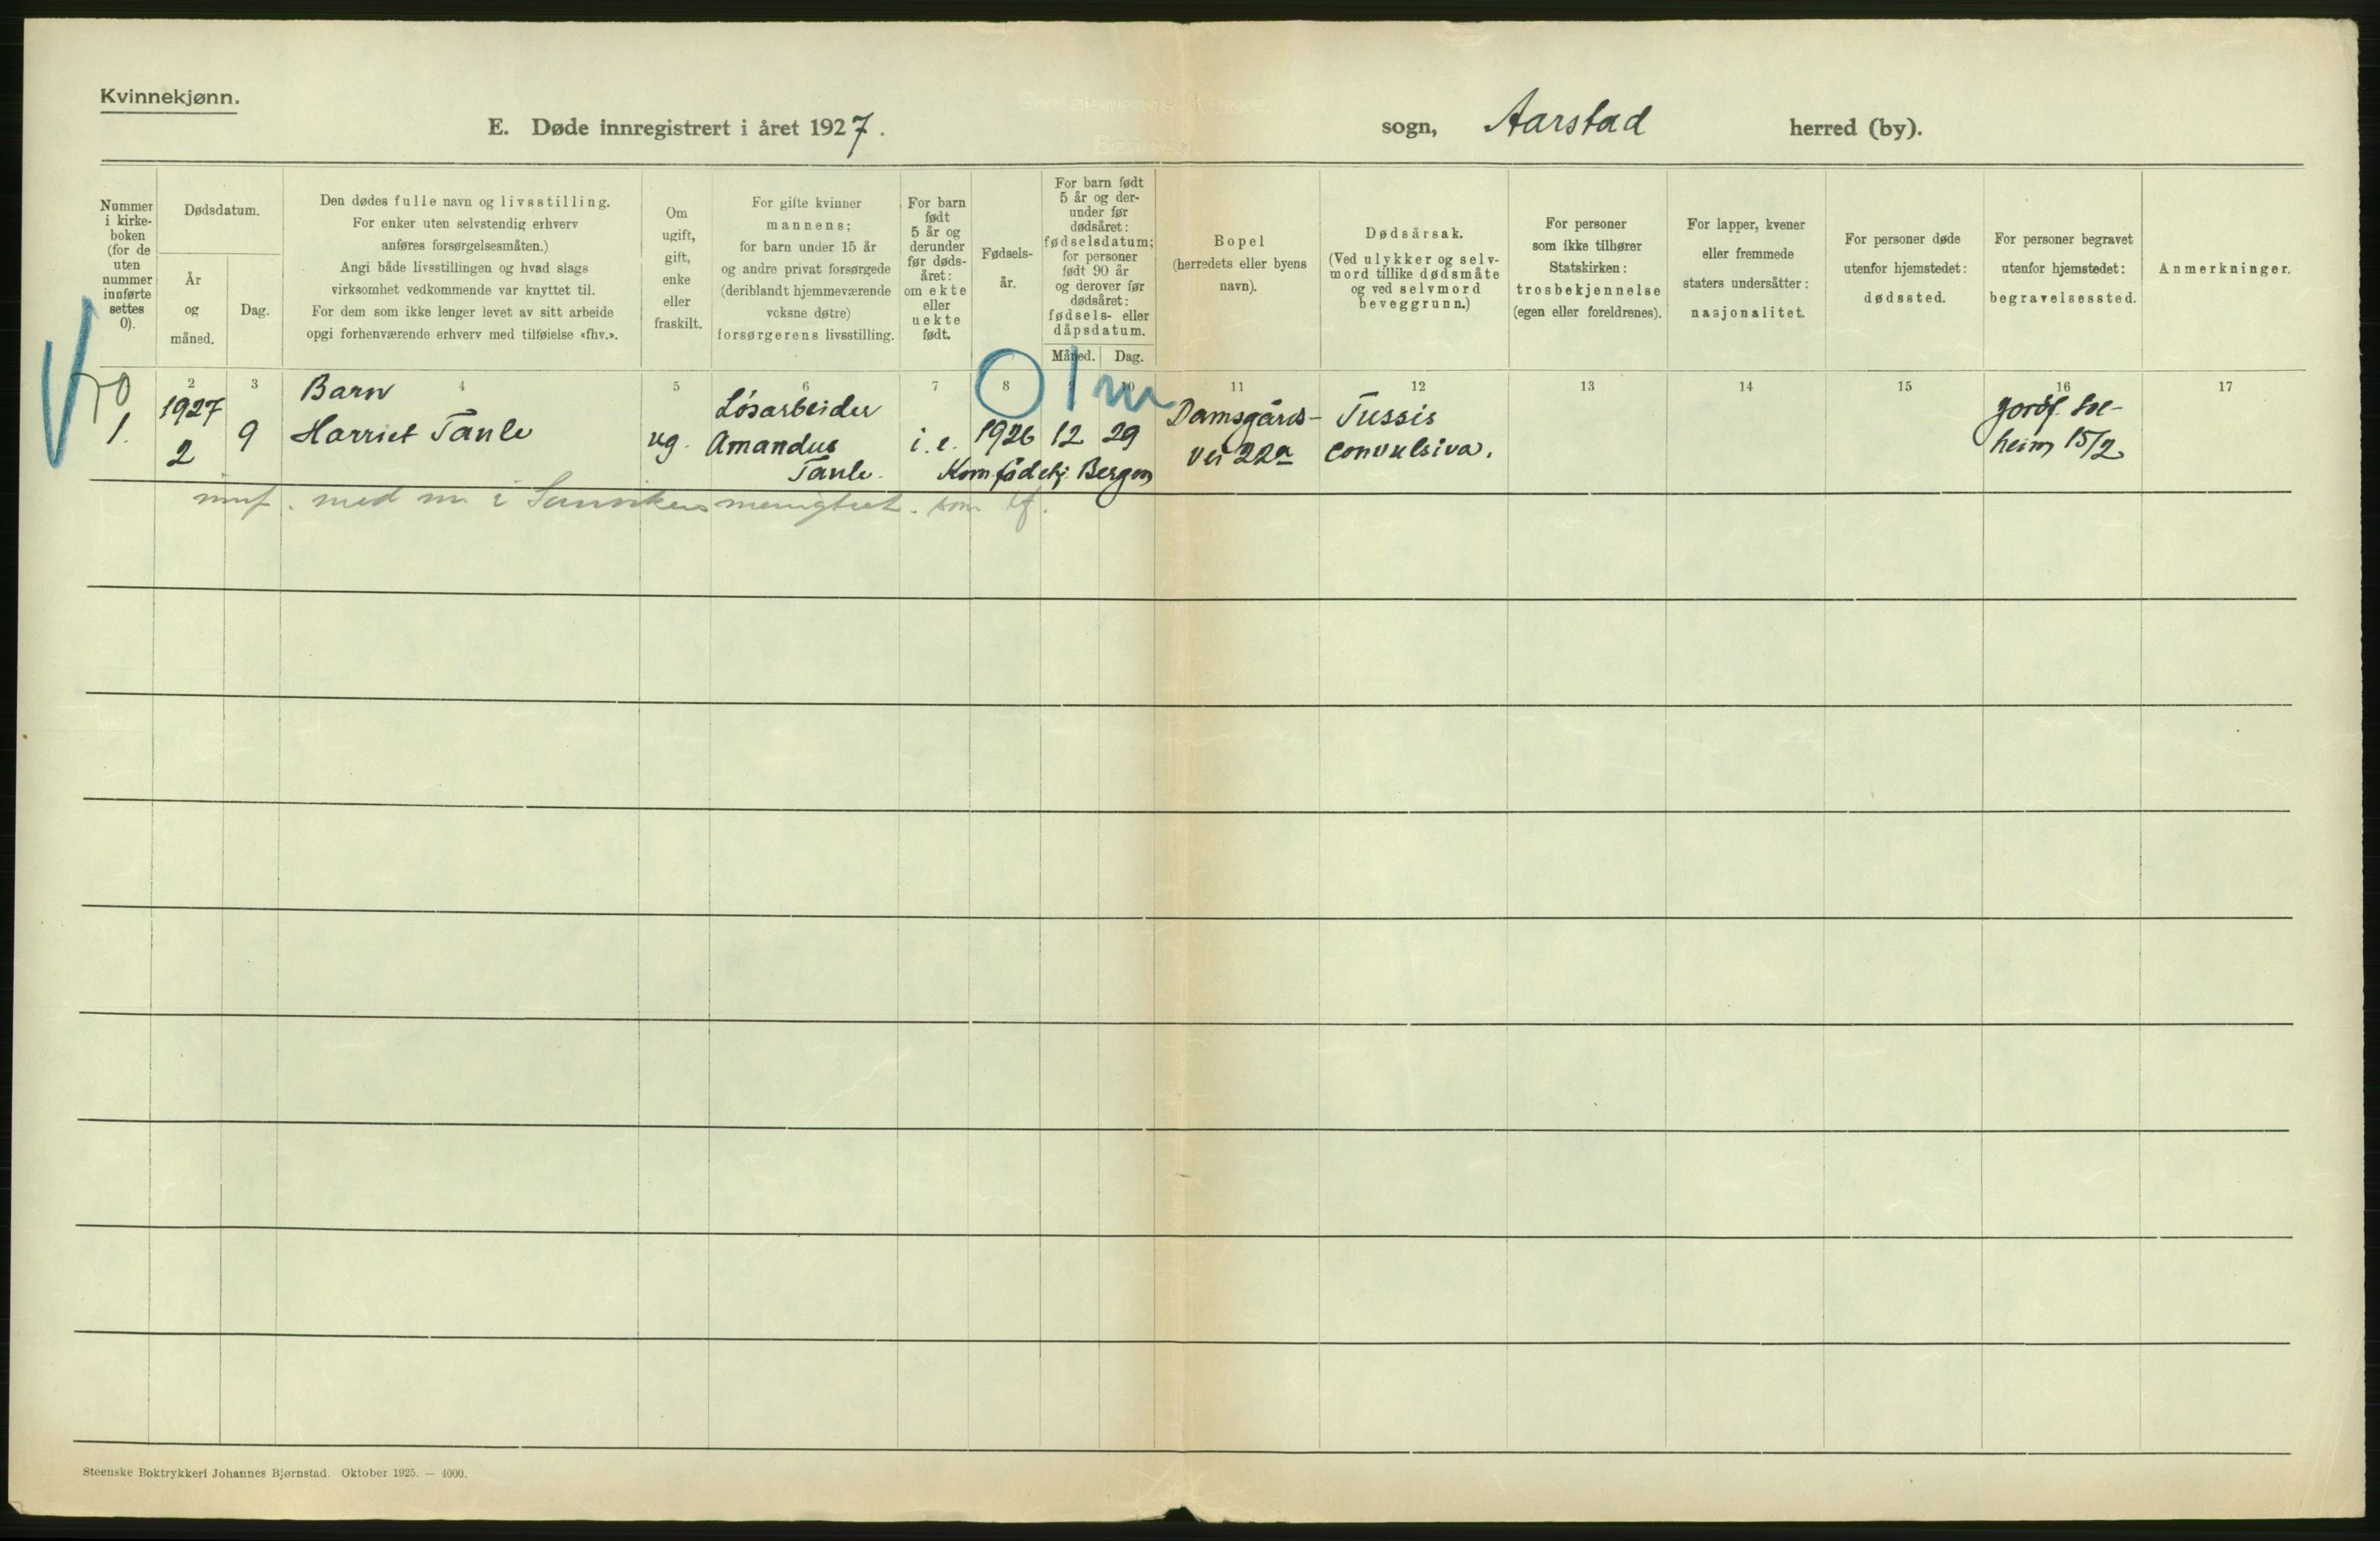 Kvinnekjønn.
E. Døde innregistrert i året 1927. sogn, Aarstad herred (by).
Nummer
i kirke-
boken
(for de
uten
nummer
innførte
settes
0).
Dødsdatum.
År
og
måned.
Dag.
Den dødes fulle navn og livsstilling.
For enker uten selvstendig erhverv
anføres forsørgelsesmåten.)
Angi både livsstillingen og hvad slags
virksomhet vedkommende var knyttet til.
For dem som ikke lenger levet av sitt arbeide
opgi forhenværende erhverv med tilføielse «fhv.».
Om
ugift,
gift,
enke
eller
fraskilt.
For gifte kvinner
mannens;
for barn under 15 år
og andre privat forsørgede
(deriblandt hjemmeværende
voksne døtre)
forsørgerens livsstilling.
For barn
født
5 år og
derunder
før døds-
året:
om ekte
eller
uekte
født.
Fødsels-
år.
For barn født
5 år og der-
under før
dødsåret:
fødselsdatum;
for personer
født 90 år
og derover før
dødsåret:
fødsels- eller
dåpsdatum.
Måned. Dag.
Bopel
(herredets eller byens
navn).
Dødsårsak.
(Ved ulykker og selv-
mord tillike dødsmåte
og ved selvmord
beveggrunn.)
For personer
som ikke tilhører
Statskirken:
trosbekjennelse
(egen eller foreldrenes).
For lapper, kvener
eller fremmede
staters undersåtter:
nasjonalitet.
For personer døde
utenfor hjemstedet:
dødssted.
For personer begravet
utenfor hjemstedet:
begravelsessted.
Anmerkninger.
2 3 4 5 6 7 8 9 10 11 12 13 14 15 16 17
0
1.
1927
2
9
Barn
Harriet Tanle
ug.
Løsarbeider
Amandus
Tanle.
i. e.
1926 12 29
0 1 m
Kom fødehj. Bergen
Damsgårds-
vei 22a
Tussis
convulsiva.
jordf. Sol-
heim 15/2
med nr. i Sandvikens menighet. som
Steenske Boktrykkeri Johannes Bjørnstad. Oktober 1925. — 4000.